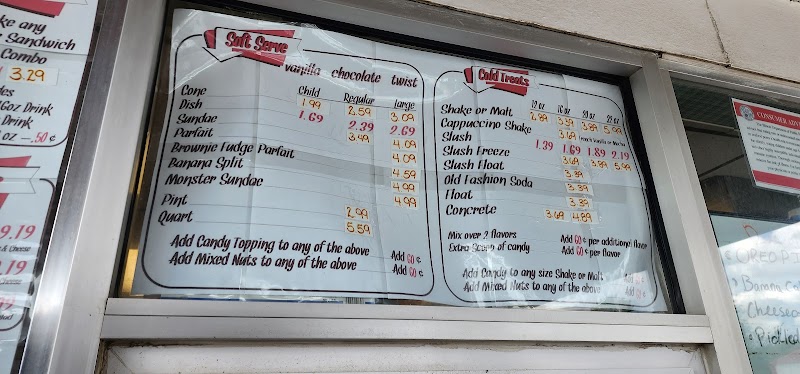 ke any
Sandwich
Combo
3.29
des
16oz Drink
Drink
oz — .50¢
9.19
& Cheese
9.19
Soft Serve
vanilla chocolate twist
Child Regular Large
Cone 1.99 2.59 3.09
Dish 1.69 2.39 2.69
Sundae 3.49 4.09
Parfait 4.09
Brownie Fudge Parfait 4.09
Banana Split 4.59
Monster Sundae 4.99
Pint 2.99 4.99
Quart 5.59
Add Candy Topping to any of the above Add 60¢
Add Mixed Nuts to any of the above Add 60¢
Cold Treats
12 oz 16 oz 20 oz 29 oz
Shake or Malt 2.89 3.39 3.89 5.99
Cappuccino Shake 3.69 French Vanilla or Mocha
Slush 1.39 1.69 1.89 2.19
Slush Freeze 3.69 3.89 5.99
Slush Float 3.39
Old Fashion Soda 3.39
Float 3.39
Concrete 3.69 4.89
Mix over 2 flavors Add 60¢ per additional flavor
Extra Scoop of candy Add 60¢ per flavor
Add Candy to any size Shake or Malt Add 60¢
Add Mixed Nuts to any of the above Add 60¢
CONSUMER ADV
OREO PI
Banana
Cheeseca
Pickled